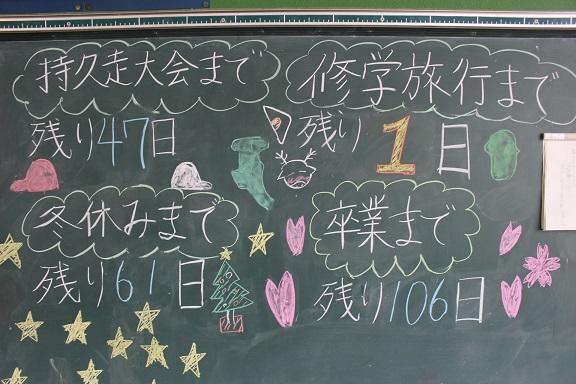 持久走大会まで
残り47日
修学旅行まで
残り1日
冬休みまで
残り61日
卒業まで
残り106日